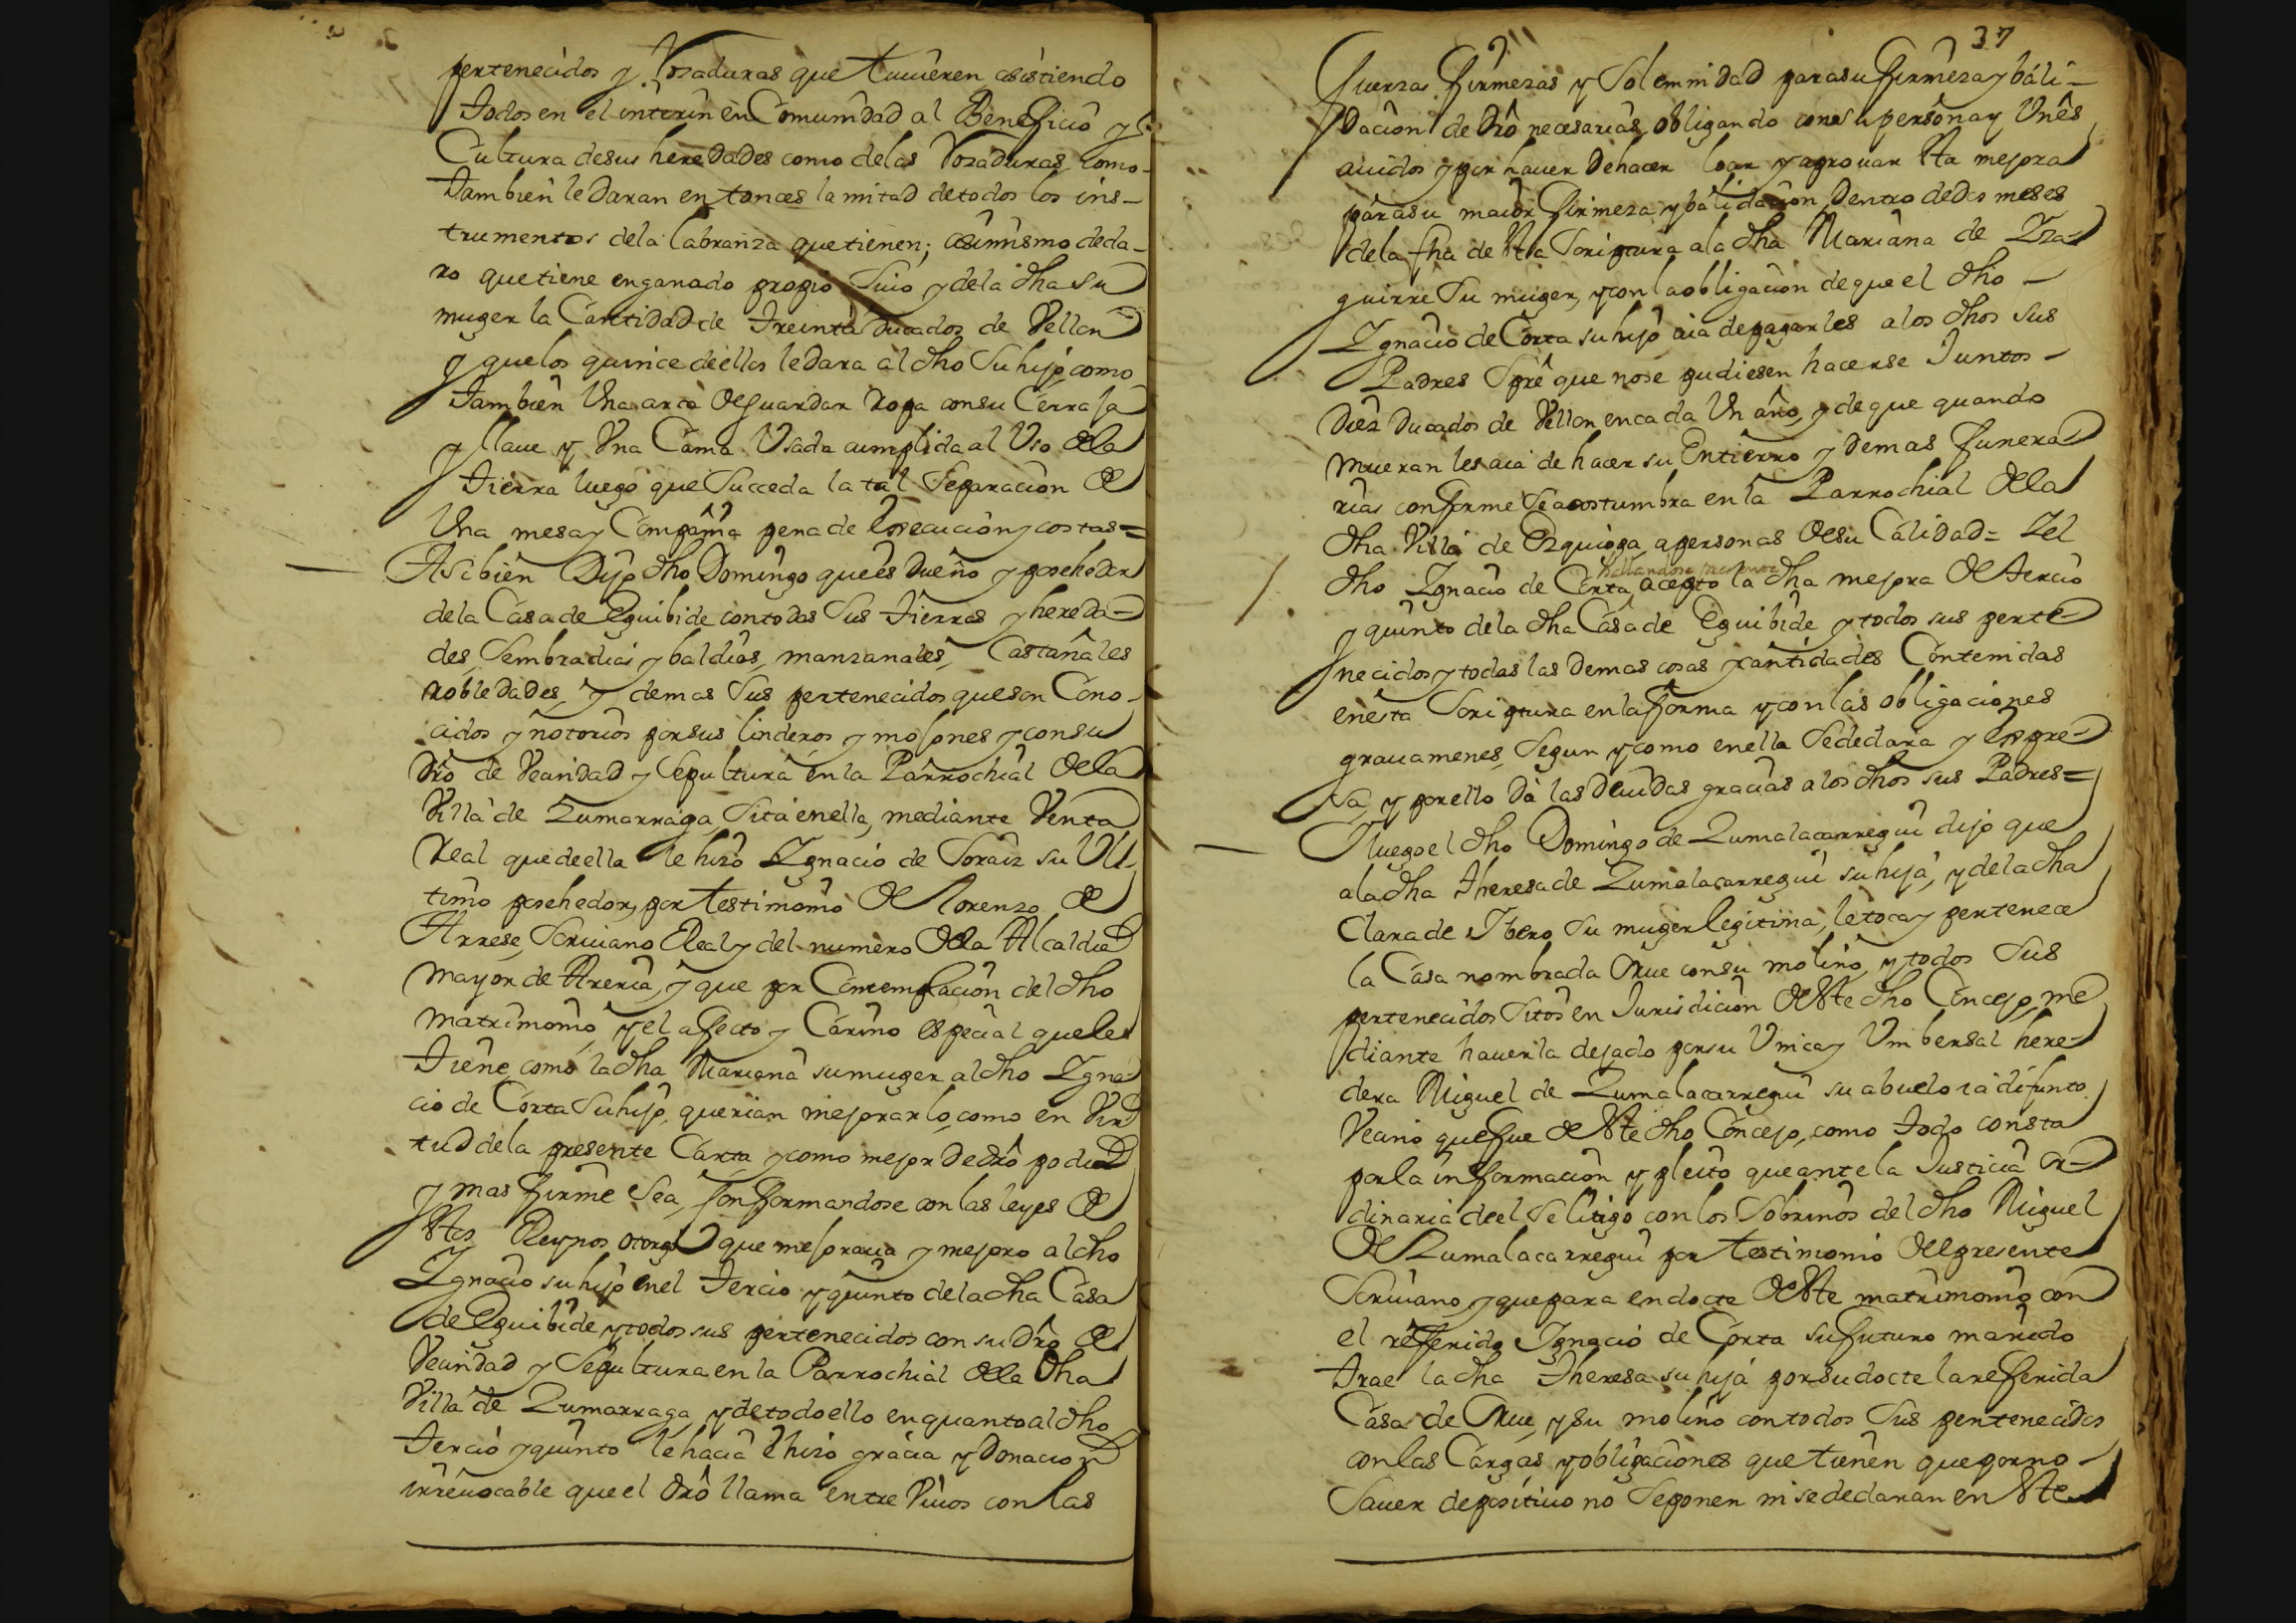 pertenecidos y Rozaduras que tuuieren asistiendo
todos en el interin en Comunidad al Beneficio y
Cultura desus heredades como delas Rozaduras, como
tambien le daran entonces la mitad detodos los ins-
trumentos dela labranza que tienen; asimismo decla-
ro que tiene enganado propio Suio y dela dha su
muger la Cantidad de treinta ducados de Vellon
y quelos quince deellos le dara al dho Su hijo como
tambien Una arca de guardar ropa consu Cerraja
y llaue y Una Cama Usada cumplida al Uso dela
tierra luego que Succeda la tal Separacion de
Una mesa y Compañia pena de Execucion y costas=
Asibien Dijo dho Domingo que es Dueño y posehedor
dela Casa de Eguibide contodas Sus tierras y hereda-
des, Sembradias y baldias, manzanales, Castañales
robledades, y demas Sus pertenecidos queson Cono-
cidos y notorios porsus linderos y mojones y consu
dro de Vecindad y Sepultura en la Parrochial dela
Villa de Zumarraga Sita enella, mediante Venta
Real quedeella le hizo Ygnacio de Soraiz su Ul-
timo posehedor, por testimonio de Lorenzo de
Arrese, Scriuano Real y del numero dela Alcaldia
Mayor de Areria, y que por Contemplacion del dho
matrimonio, y el afecto y Cariño especial queles
tiene, como la dha Mariana su muger al dho Ygna
cio de Corta Su hijo, querian mejorarlo, como en Vir
tud dela presente Carta y como mejor de dro podia
y mas firme Sea, Conformandose con las leyes de
stos Reynos otorgo que mejoraua y mejoro al dho
Ygnacio su hijo enel tercio y quinto dela dha Casa
de Eguibide, y todos sus pertenecidos con su dro de
Vecindad y Sepultura en la Parrochial dela dha
Villa de Zumarraga, y detodo ello en quanto al dho
tercio y quinto le hacia e hizo gracia y Donacion
irreuocable que el dro llama entre Viuos con las
37
fuerzas firmezas y Solemnidad parasu firmeza y bali-
dacion de dro necesarias, obligando consu persona y Vnes
auidos y por hauer de hacer loar y aprouar sta mejora
parasu maior firmeza y balidacion, Dentro dedos meses
dela fha de sta Scriptura ala dha Mariana de Yza-
guirre Su muger, y con la obligacion de que el dho -
Ygnacio de Corta su hijo aia depagarles alos dhos sus
Padres Spre que nose pudiesen hacerse Juntos -
Diez Ducados de Vellon encada Un año, y de que quando
mueran les aia de hacer su Entierro y demas funera
rias conforme Seacostumbra en la Parrochial dela
dha Villa de Ezquioga apersonas desu Calidad= Yel
hallandose presente
dho Ygnacio de Corta, acepto la dha mejora de tercio
y quinto dela dha Casa de Eguibide y todos sus perte
necidos y todas las demas cosas y cantidades Contenidas
enesta Scriptura en la forma y con las obligaciones
grauamenes, Segun y como enella Sedeclara y Expre
sa, y porello dá las deuidas gracias alos dhos sus Padres=
Yluego el dho Domingo de Zumalacarregui dijo que
ala dha Theresa de Zumalacarregui su hija, y dela dha
Clara de Ybero Su muger legitima, letoca y pertenece
la Casa nombrada Orue consu molino, y todos Sus
pertenecidos Sitos en Jurisdicion deste dho Concejo, me
diante hauerla dejado porsu Unica y Unibersal here-
dera Miguel de Zumalacarregui su abuelo ia difunto
Vecino que fue deste dho Concejo, como todo consta
porla informacion y pleito que ante la Justicia or
dinaria deel Se litigo con los Sobrinos del dho Miguel
de Zumalacarregui por testimonio del presente
Scriuano y que para en docte deste matrimonio con
el referido Ygnacio de Corta sufuturo marido
trae la dha Theresa su hija porsu docte la referida
Casa de Orue, y su molino contodos Sus pertenecidos
con las Cargas y obligaciones que tienen que por no -
Sauer depositiuo no Seponen ni se declaran en ste